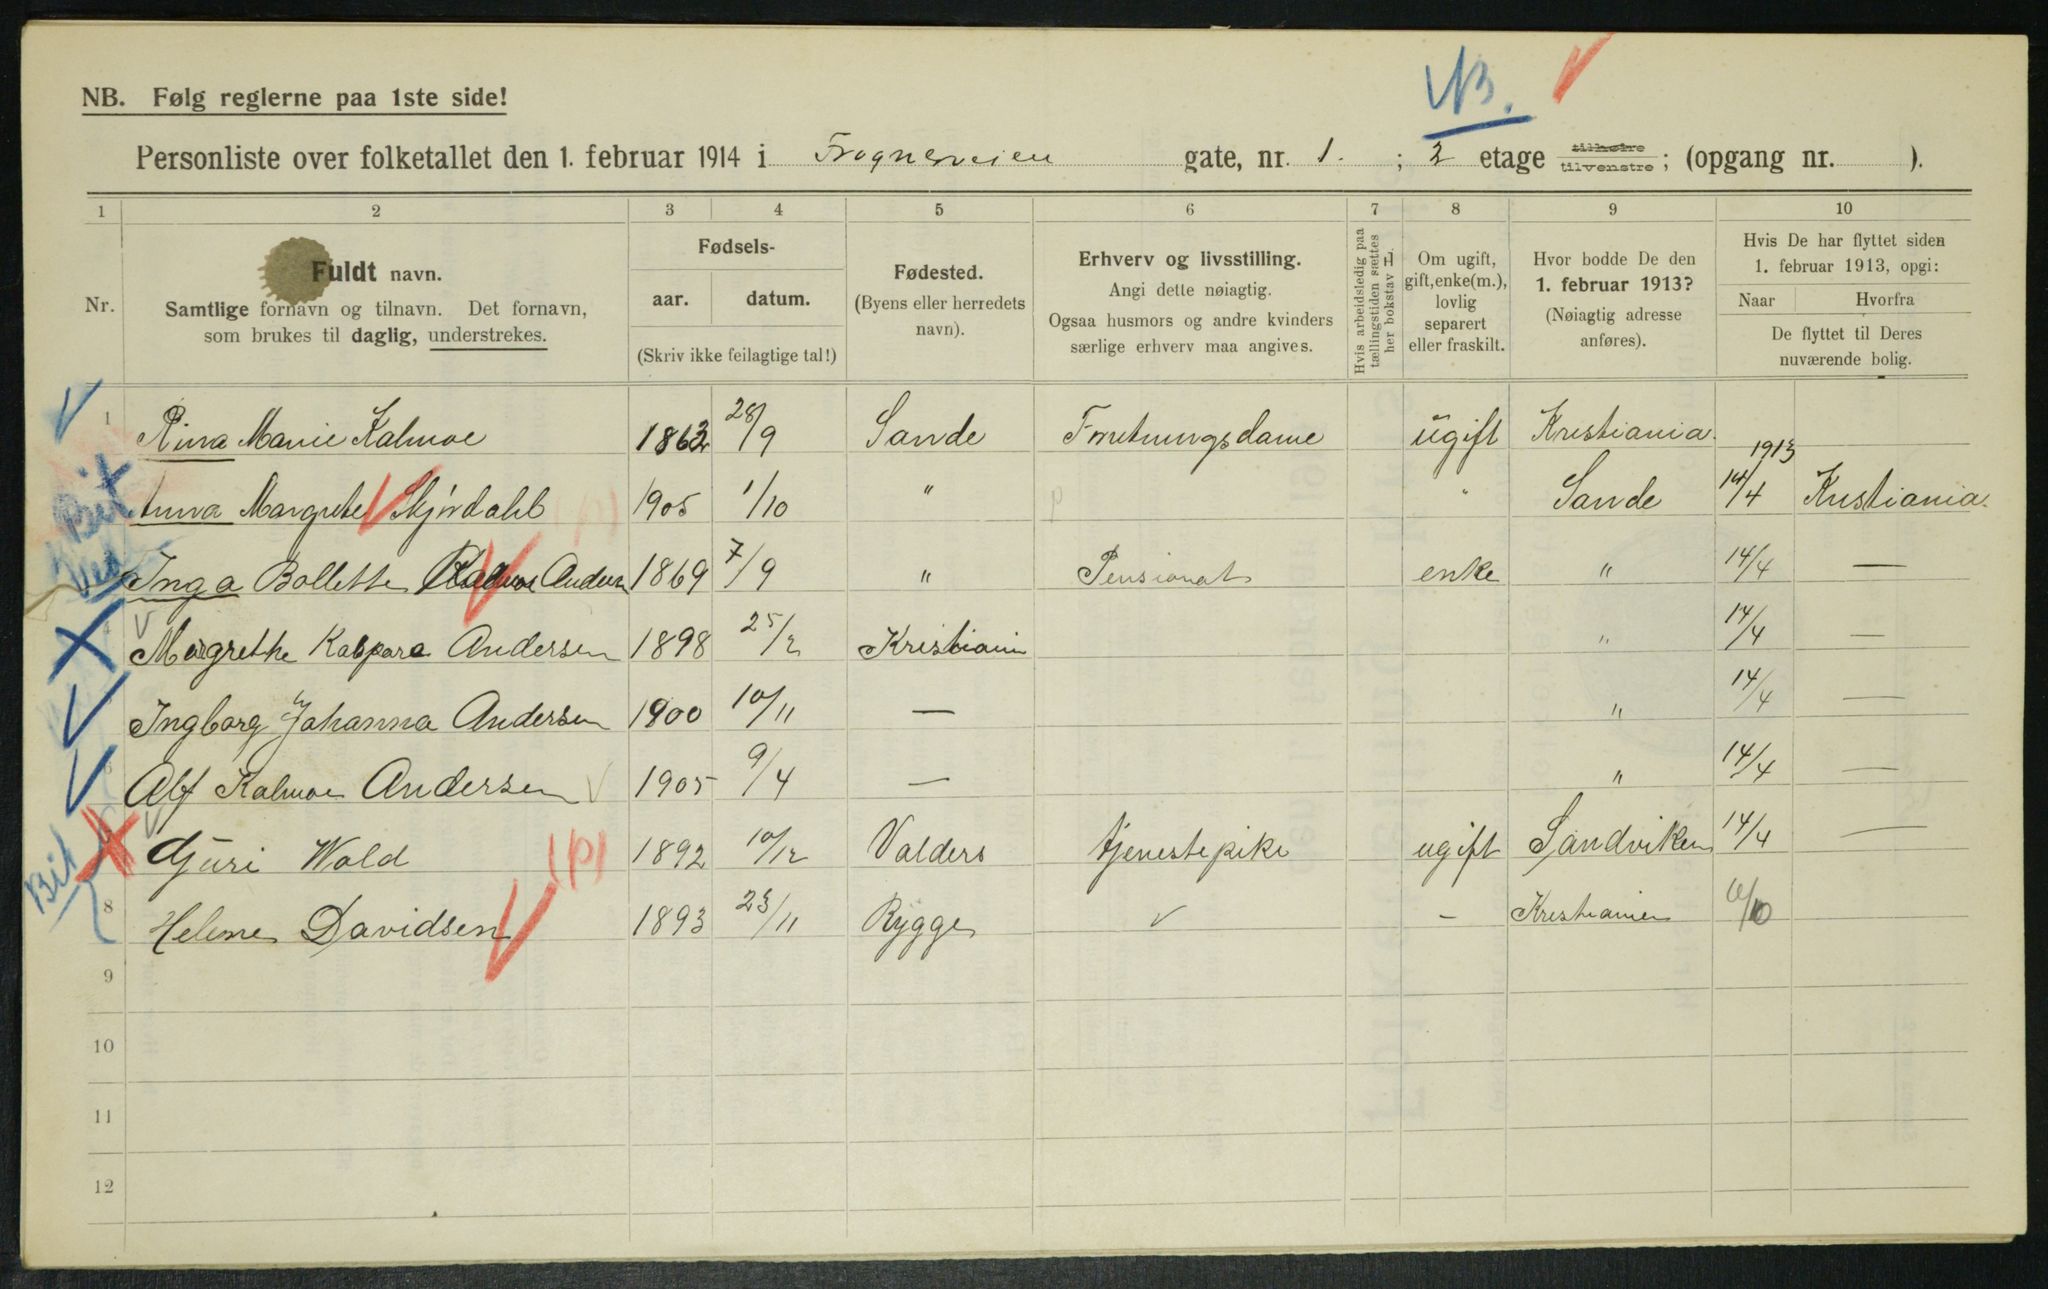 NB.
NB. Følg reglerne paa 1ste side!
Personliste over folketallet den 1. februar 1914 i Frognerveien gate, nr. 1. ; 2 etage tilhøire/tilvenstre; (opgang nr. ).
1 2 3 4 5 6 7 8 9 10
Nr.
Fuldt navn.
Samtlige fornavn og tilnavn. Det fornavn,
som brukes til daglig, understrekes.
Fødsels-
aar. datum.
(Skriv ikke feilagtige tal!)
Fødested.
(Byens eller herredets
navn).
Erhverv og livsstilling.
Angi dette nøiagtig.
Ogsaa husmors og andre kvinders
særlige erhverv maa angives.
Hvis arbeidsledig paa
tællingstiden sættes
her bokstav L.
Om ugift,
gift, enke(m.),
lovlig
separert
eller fraskilt.
Hvor bodde De den
1. februar 1913?
(Nøiagtig adresse
anføres).
Hvis De har flyttet siden
1. februar 1913, opgi:
Naar Hvorfra
De flyttet til Deres
nuværende bolig.
1 Rina Marie Kalmoe 1863 28/9 Sande Forretningsdame ugift Kristiania.
Bit Anna Margrete Skjørdahl 1905 1/10 " " Sande 1913 14/4 Kristiania.
Inga Bollette Kalmoe Anders 1869 7/9 " Pensionat enke " 14/4 —
4 Margrethe Kaspara Andersen 1898 25/2 Kristiania " 14/4 —
Ingborg Johanna Andersen 1900 10/11 — " 14/4 —
6 Alf Kalmoe Andersen 1905 9/4 — " 14/4 —
Guri Wold (p) 1892 10/12 Valders tjenestepike ugift Sandviken 14/4 —
Bit 8 Helene Davidsen 1893 23/11 Rygge — Kristiania
9
10
11
12